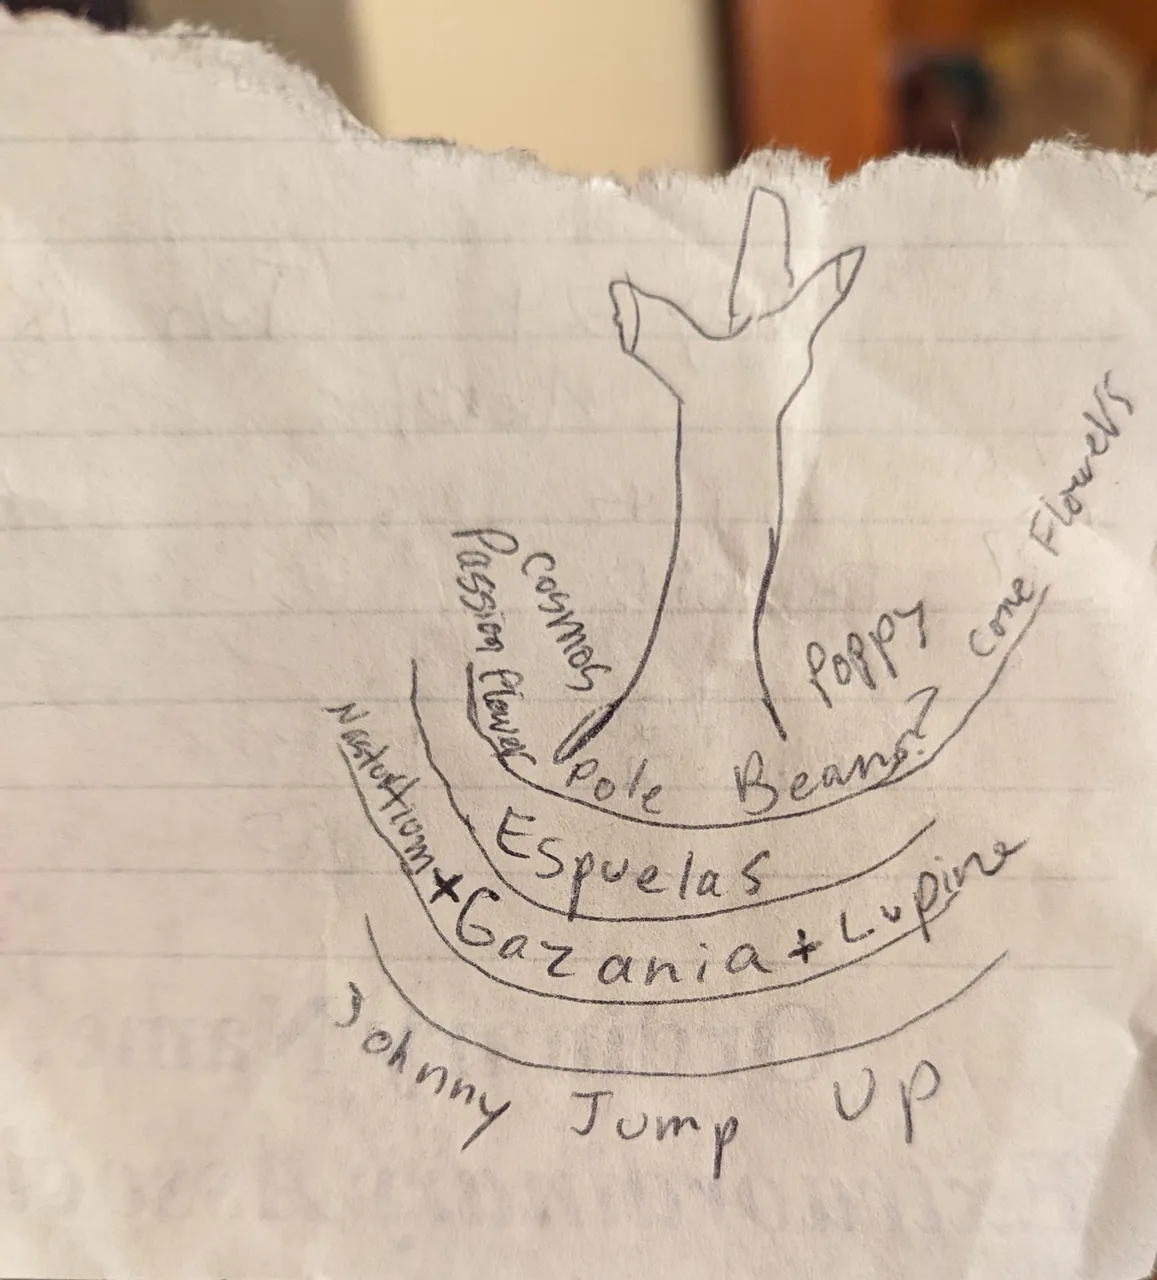 Cosmos
Passion Flower
Poppy
Cone Flowers
Pole Beans?
Espuelas
Nasturtium + Gazania + Lupine
Johnny Jump Up